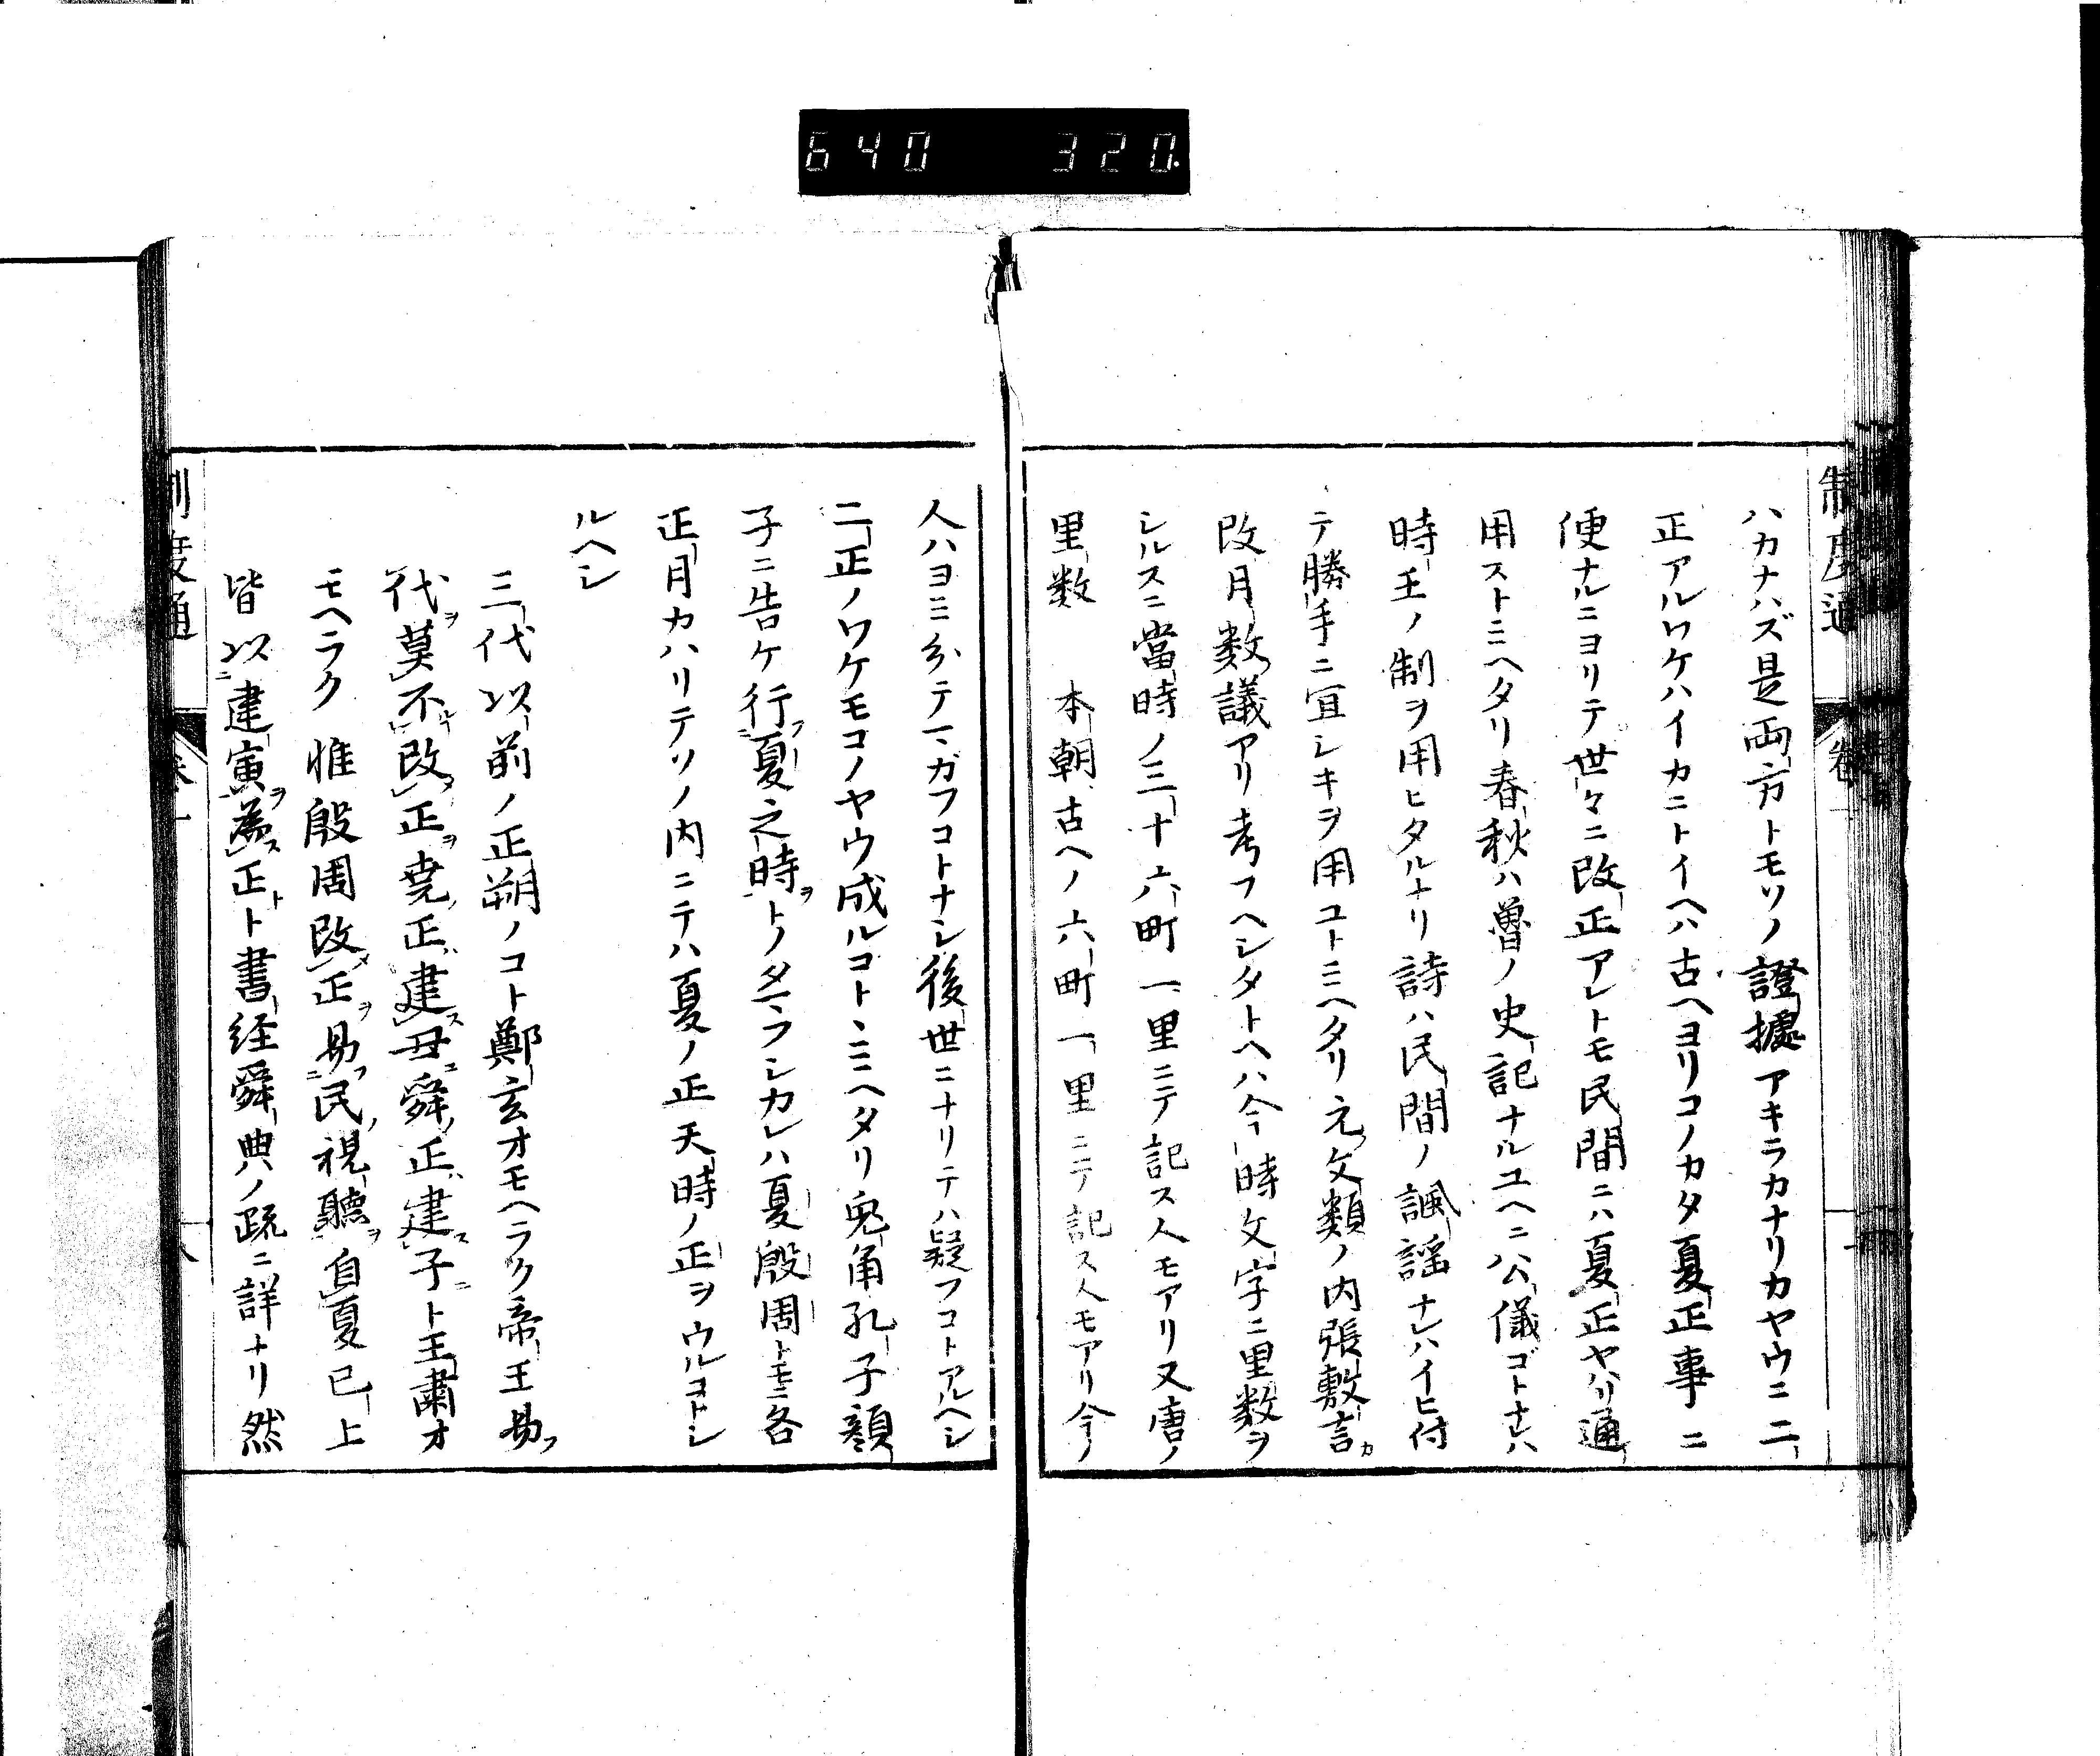 640 320.
制度通 巻一
ハカナハズ是両方トモソノ證據アキラカナリカヤウニ二
正アルワケハイカニトイヘハ古ヘヨリコノカタ夏正事ニ
便ナルニヨリテ世々ニ改正アレトモ民間ニハ夏正ヤハリ通
用ストミヘタリ春秋ハ魯ノ史記ナルユヘニ公儀ゴトナレハ
時王ノ制ヲ用ヒタルナリ詩ハ民間ノ諷謡ナレハイヒ付
テ勝手ニ宜シキヲ用ユトミヘタリ元文類ノ内張敷言カ
改月数議アリ考フヘシタトヘハ今時文字ニ里数ヲ
シルスニ當時ノ三十六町一里ニテ記ス人モアリ又唐ノ
里数 本朝古ヘノ六町一里ニテ記ス人モアリ今ノ
人ハヨミ分テマガフコトナシ後世ニナリテハ疑フコトアルヘシ
二正ノワケモコノヤウ成ルコトヽミヘタリ兎角孔子顔
子ニ告ケ行フ夏之時ヲトノタマフシカレハ夏殷周トモニ各
正月カハリテソノ内ニテハ夏ノ正天時ノ正ヲウルコトシ
ルヘシ
三代以前ノ正朔ノコト鄭玄オモヘラク帝王易フ
代ヲ莫不改正ヲ堯正建丑舜正建子ト王粛オ
モヘラク惟殷周改正ヲ易民視聽ヲ自夏已上
皆以建寅ヲ為正ト書経舜典ノ疏ニ詳ナリ然
制度通 巻一 八